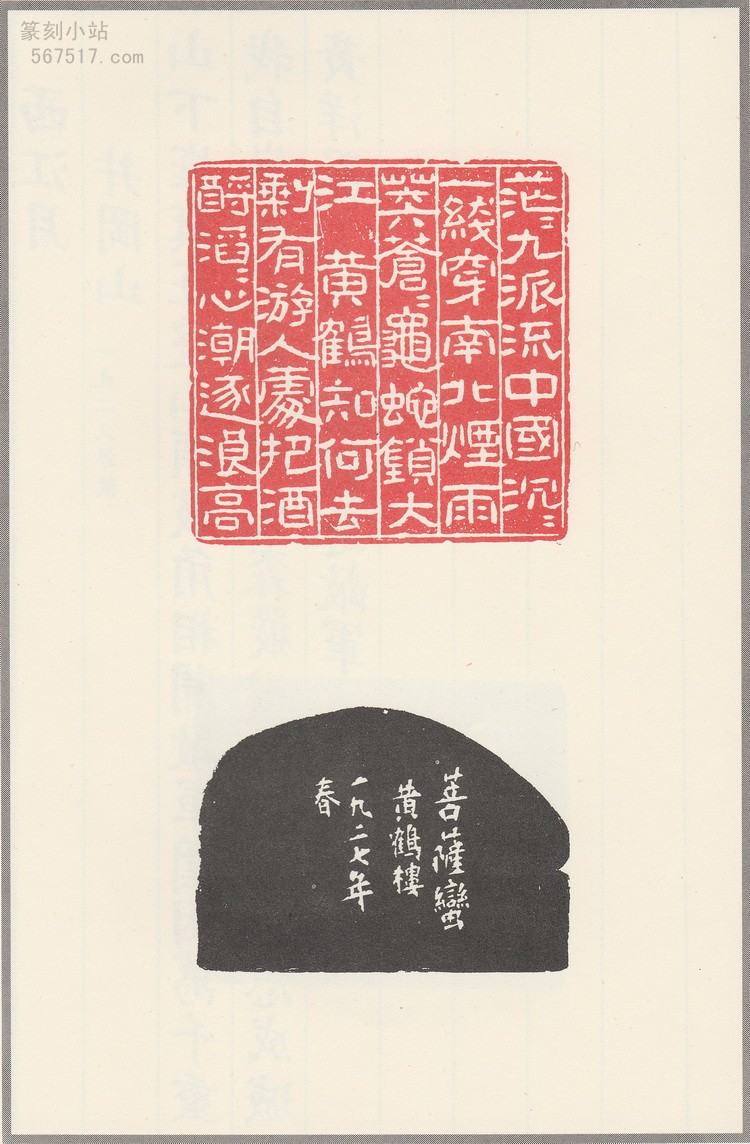 篆刻小站
567517.com
茫〻九派流中國沉〻
一綫穿南北煙雨
莽蒼〻龜蛇鎖大
江 黃鶴知何去
剩有游人處把酒
酹滔〻心潮逐浪高
菩薩蠻
黄鶴樓
一九二七年
春